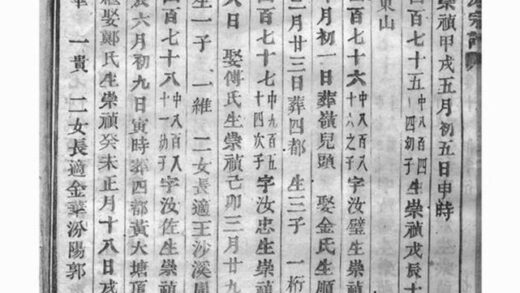 崇禎甲戌五月初五日申時
百七十五 中八百四十四幼子 生崇禎戊辰十
東山
百七十六 中八百八十六之子 字汝璧生崇禎
月初一日葬黃兒頭 娶金氏生順
二月廿三日葬四都 生三子 一桁
百七十七 中九百五十四次子 字汝忠生崇禎
八日 娶傅氏生崇禎己卯三月廿九
生一子 一維 二女長適王沙溪
百七十八 字汝佐生崇禎
辰六月初九日寅時葬四都黃大塘頂
娶鄭氏生崇禎癸未正月十八日戌
一貴 二女長適金華汾陽郭